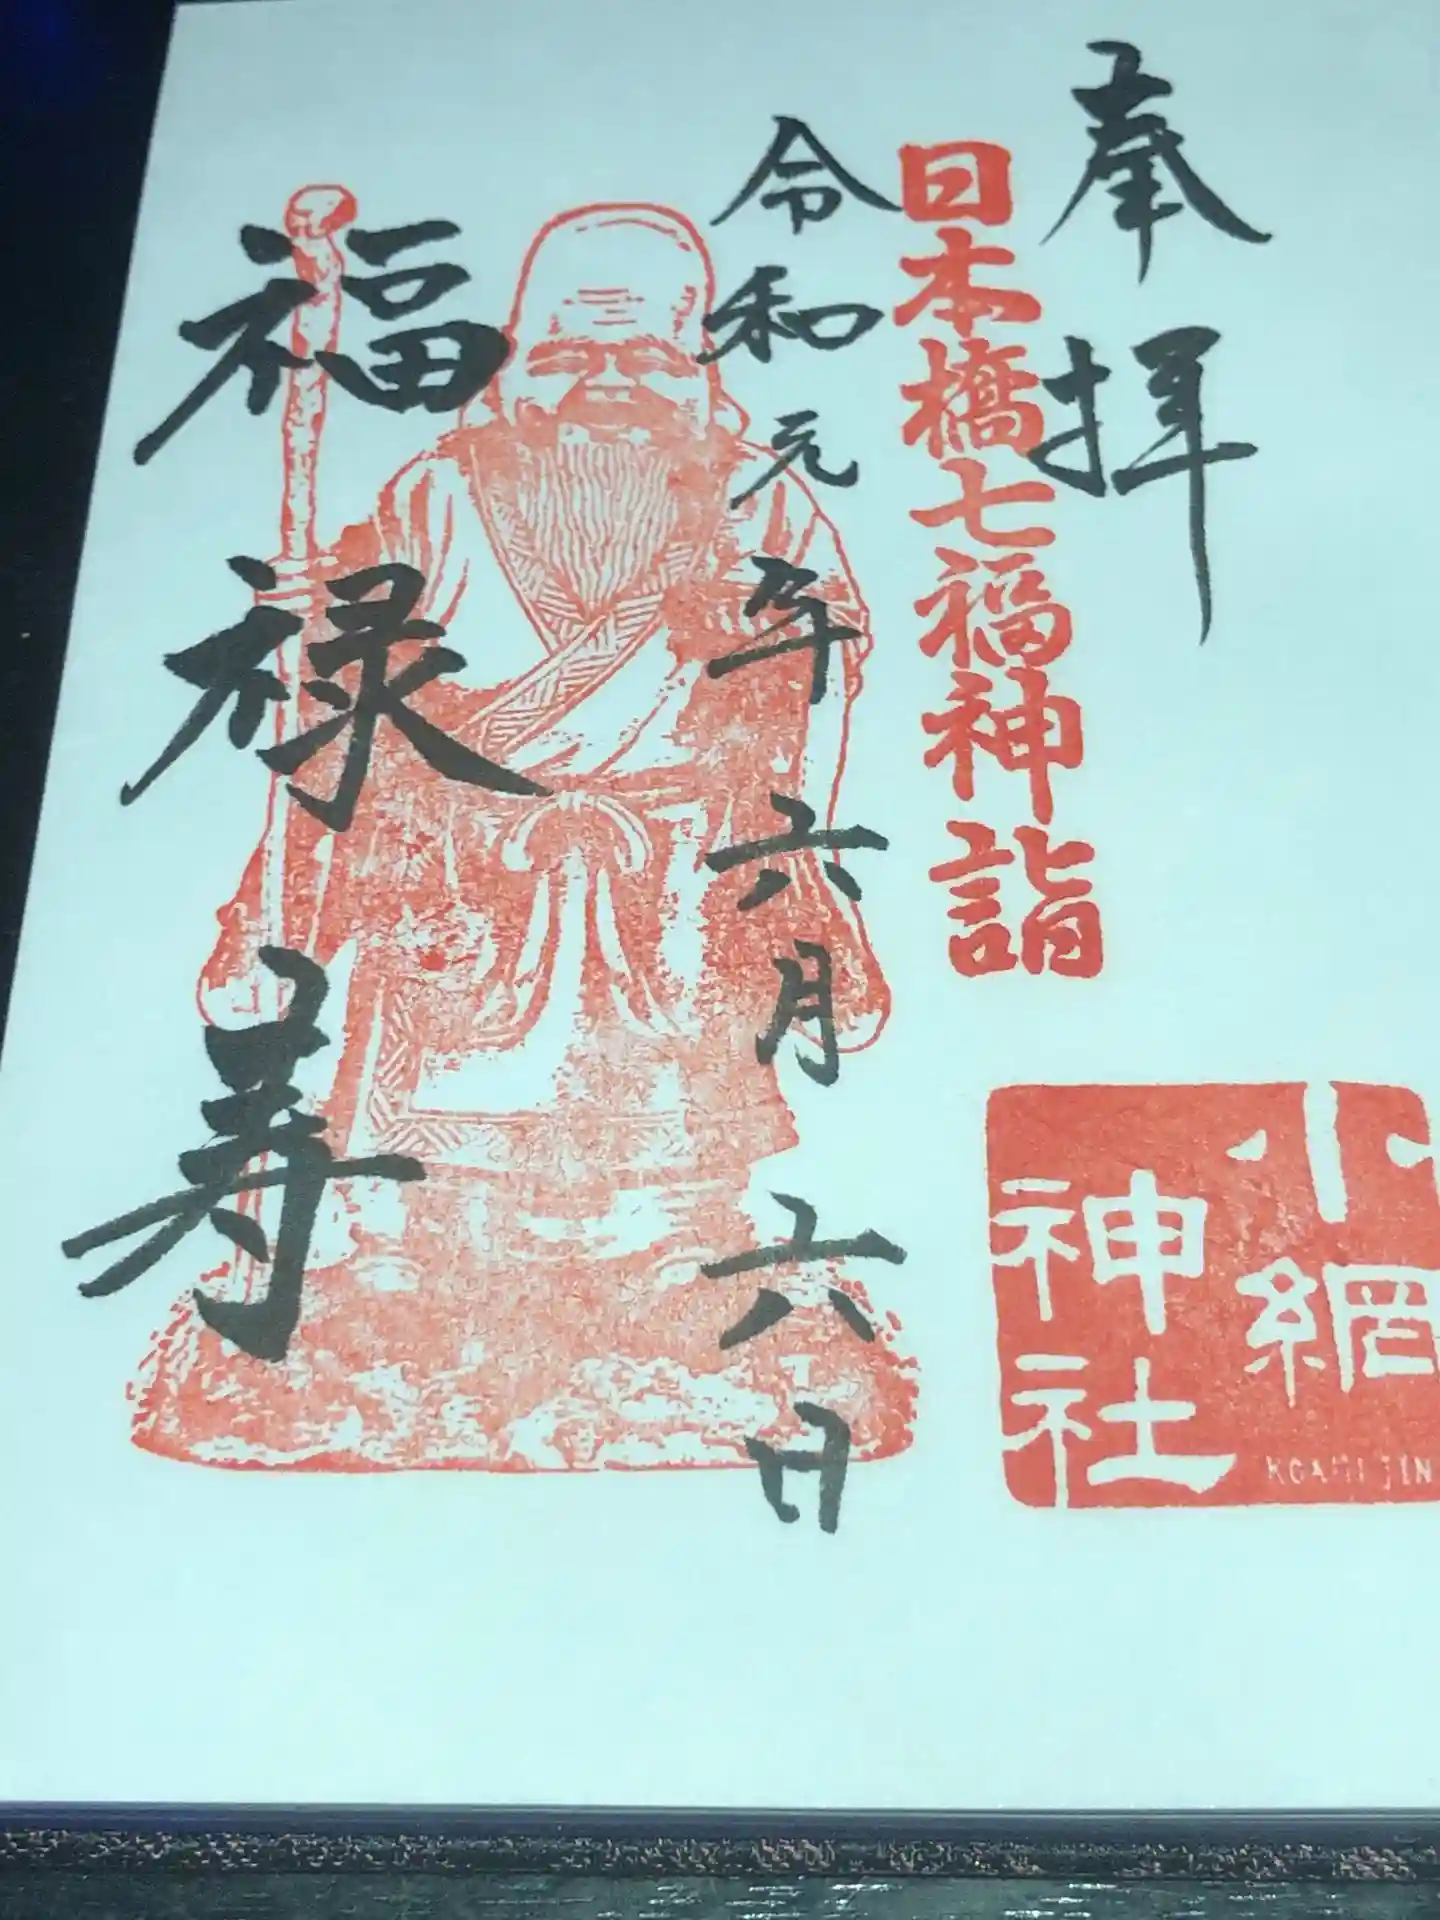 奉拝
日本橋七福神詣
小網
神社
令和元年六月六日
福禄寿